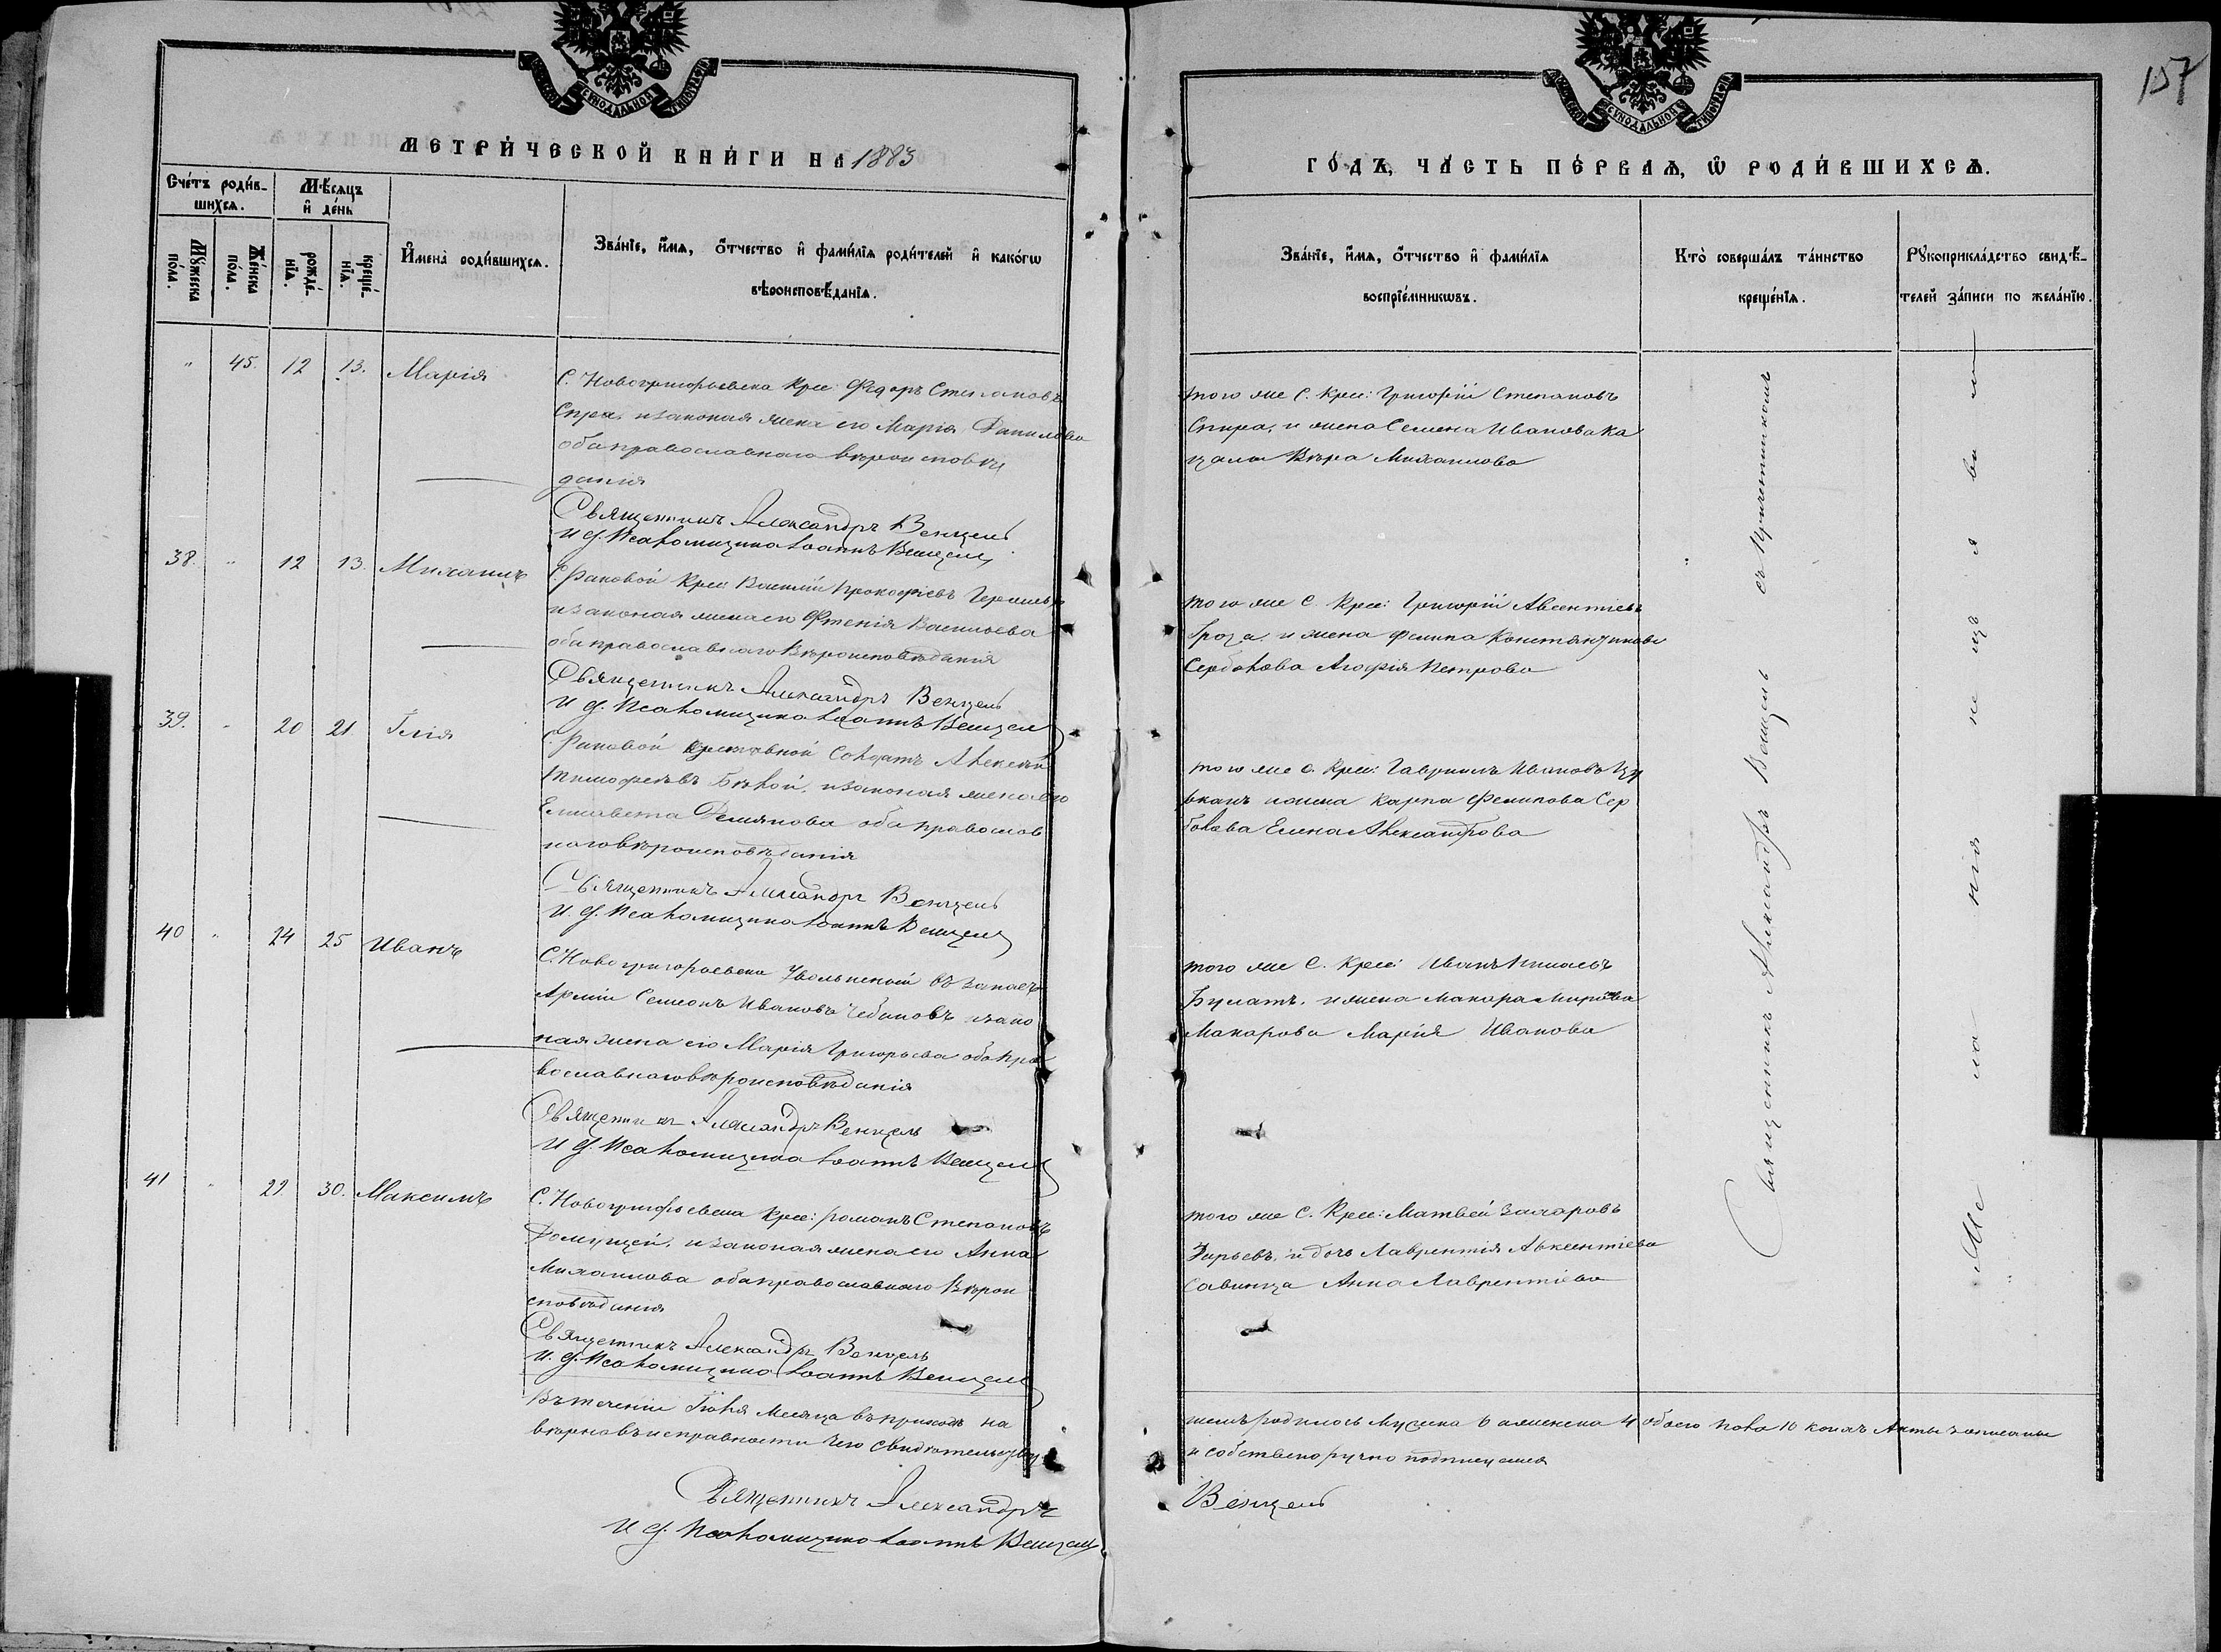 157
МЕТРИ́ЧЕСКОЙ КНИ́ГИ НА 1883
ГО́ДЪ, ЧА́СТЬ ПЕ́РВАѦ, Ѡ РОДИ́ВШИХСѦ.
Сче́тъ роди́в-
шихсѧ.
Мѣ́сѧцъ
и҆ де́нь
Мꙋ́жеска
по́ла.
Же́нска
по́ла.
рожде́-
нїѧ.
креще́-
нїѧ.
И҆мена̀ роди́вшихсѧ.
Зва́нїе, и҆́мѧ, ѻ҆́тчество и҆ фами́лїѧ роди́телей и҆ како́гѡ
вѣроисповѣ́данїѧ.
Зва́нїе, и҆́мѧ, ѻ҆́тчество и҆ фами́лїѧ
воспрїе́мникѡвъ.
Кто̀ соверша́лъ та́инство
креще́нїѧ.
Рꙋкоприкла́дство свидѣ́-
телей за́писи по жела́нїю.
" 45. 12 13. Марія
С. Новогригорьевка Крес: Федоръ Степановъ
Спира и законая жена его Марія Данилова
оба православнаго вѣроисповѣ
данія
Священникъ Александръ Венцель
И. д. Псаломщика Іоаннъ Венцель
того же С. Крес: Григорій Степановъ
Спира, и жена Семена Иванова Ка
цалы Вѣра Михаилова
38. " 12 13. Михаилъ
С. Раковой Крес: Василій Прокофіевъ
и законая жена его Фтенія Васильева
оба православнаго Вѣроисповѣданія
Священникъ Александръ Венцель
И д. Псаломщика Іоаннъ Венцель
того же С. Крес: Григорій Авксентіевъ
Гроза и жена Филипа Константинова
Серболова Агафія Петрова
39. " 20 21. Ілія
С. Раковой Солдатъ Алексѣй
Тимофеевъ Бѣлой, и законая жена его
Елисавета Демянова оба православ
наго вѣроисповѣданія
Священникъ Александръ Венцель
И. д. Псаломщика Іоаннъ Венцель
того же с. Крес: Гавриилъ Ивановъ Цу
рканъ и жена Карпа Филипова Сер
болова Елена Александрова
40 " 24 25 Иванъ
С. Новогригорьевка Уволенный въ запасъ
Арміи Семеонъ Ивановъ Чебановъ и зако
ная жена его Марія Григорьева оба пра
вославнаго вѣроисповѣданія
Священникъ Александръ Венцель
И д. Псаломщика Іоаннъ Венцель
того же С. Крес: Иванъ
Булатъ, и жена Макара Миронова
Макарова Марія Иванова
41 " 29. 30. Максимъ
С. Новогригорьевка Крес: Романъ Степановъ
Домущей, и законая жена его Анна
Михаилова оба православнаго Вѣрои
сповѣданія
Священникъ Александръ Венцель
И. д. Псаломщика Іоаннъ Венцель
того же С. Крес: Матвей Захаровъ
и дочь Лаврентія Авксентіева
Савинца Анна Лаврентіева
Священникъ Александръ Венцель съ Причетникомъ
Же ла нія не из я ви л
Въ теченіи Іюля Месяца въ приходѣ на
шемъ родилось Мужска 6 а женска 4 обоего пола 10 коихъ Акты записаны
вѣрно въ исправности чего свидѣтельству
и собственоручно подписуемся
Священникъ Александръ Венцель
И д. Псаломщика Іоаннъ Венцель